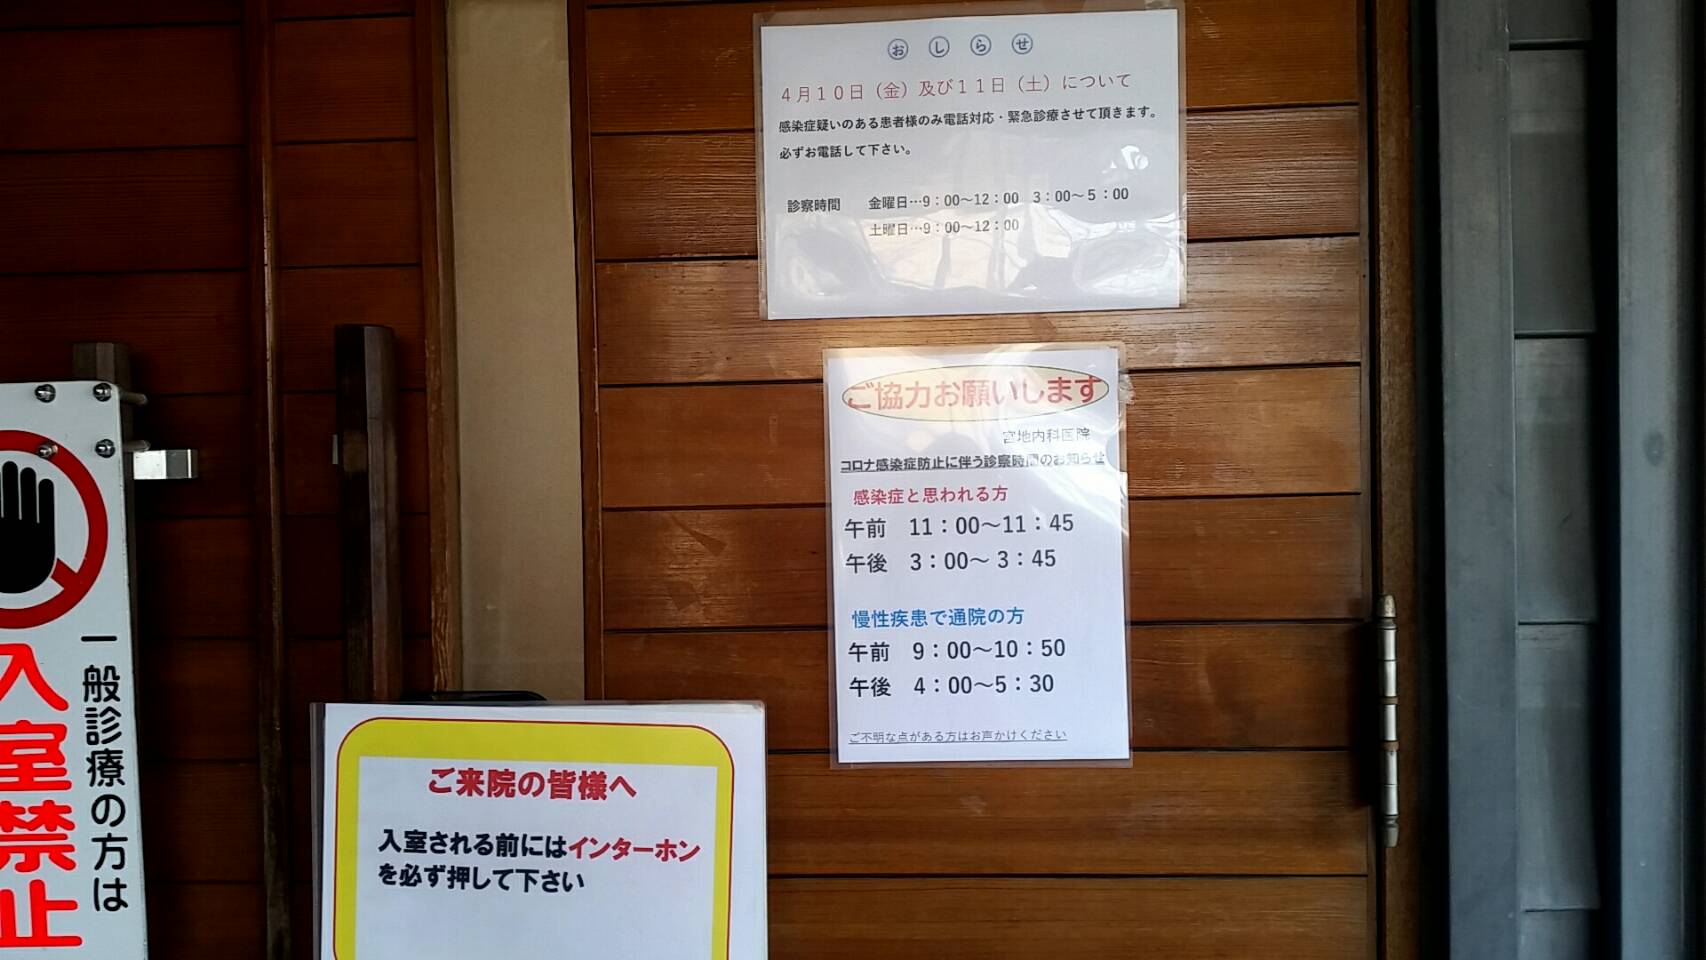 おしらせ
4月10日（金）及び11日（土）について
感染症疑いのある患者様のみ電話対応・緊急診療させて頂きます。
必ずお電話して下さい。
診察時間　金曜日…9：00～12：00　3：00～5：00
土曜日…9：00～12：00
ご協力お願いします
宮地内科医院
コロナ感染症防止に伴う診察時間のお知らせ
感染症と思われる方
午前　11：00～11：45
午後　3：00～3：45
慢性疾患で通院の方
午前　9：00～10：50
午後　4：00～5：30
ご不明な点がある方はお声かけください
一般診療の方は
入室禁止
ご来院の皆様へ
入室される前にはインターホン
を必ず押して下さい